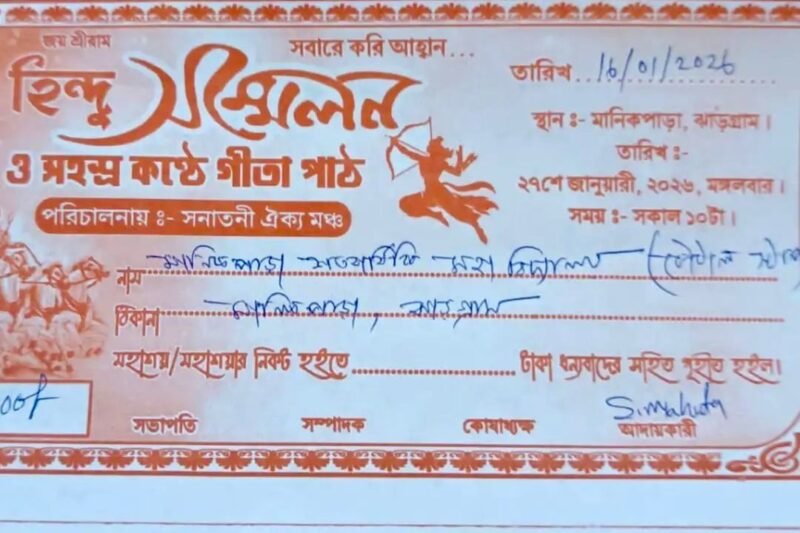 জয় শ্রীরাম
সবারে করি আহ্বান...
হিন্দু সম্মেলন
ও সহস্র কণ্ঠে গীতা পাঠ
পরিচালনায় ঃ- সনাতনী ঐক্য মঞ্চ
তারিখ 16/01/2026
স্থান ঃ- মানিকপাড়া, ঝাড়গ্রাম।
তারিখ ঃ-
২৭শে জানুয়ারী, ২০২৬, মঙ্গলবার।
সময় ঃ- সকাল ১০টা।
নাম মানিকপাড়া শতবার্ষিকি মহা বিদ্যালয়
ঠিকানা মানিকপাড়া, ঝাড়গ্রাম
মহাশয়/মহাশয়ার নিকট হইতে টাকা ধন্যবাদের সহিত গৃহীত হইল।
সভাপতি সম্পাদক কোষাধ্যক্ষ আদায়কারী
S. Mahata